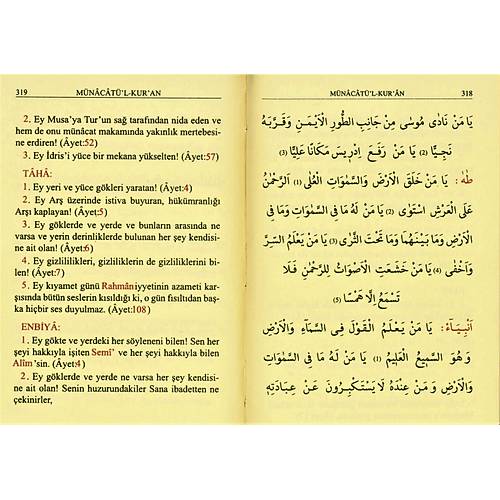 319 MÜNÂCÂTÜ'L-KUR'AN
2. Ey Musa'ya Tur'un sağ tarafından nida eden ve
hem de onu münâcat makamında yakınlık mertebesi-
ne erdiren! (Âyet:52)
3. Ey İdris'i yüce bir mekana yükselten! (Âyet:57)
TÂHÂ:
1. Ey yeri ve yüce gökleri yaratan! (Âyet:4)
2. Ey Arş üzerinde istiva buyuran, hükümranlığı
Arşı kaplayan! (Âyet:5)
3. Ey göklerde ve yerde ve bunların arasında ne
varsa ve yerin derinliklerde bulunan her şey kendisi-
ne ait olan! (Âyet:6)
4. Ey gizlilikleri, gizliliklerin de gizliliklerini bi-
len! (Âyet:7)
5. Ey kıyamet günü Rahmâniyyetinin azameti kar-
şısında bütün seslerin kısıldığı ki, o gün fısıltıdan baş-
ka hiçbir ses duyulmaz. (Âyet:108)
ENBİYÂ:
1. Ey gökte ve yerdeki her söyleneni bilen! Sen her
şeyi hakkıyla işiten Semî' ve her şeyi hakkıyla bilen
Alîm'sin. (Âyet:4)
2. Ey göklerde ve yerde ne varsa her şey kendisi-
ne ait olan! Senin huzurundakiler Sana ibadetten ne
çekinirler,
MÜNÂCÂTÜ'L-KUR'ÂN 318
يَا مَنْ نَادٰى مُوسٰى مِنْ جَانِبِ الطُّورِ الْاَيْمَنِ وَقَرَّبَهُ
نَجِيًّا (2) يَا مَنْ رَفَعَ اِدْرِيسَ مَكَانًا عَلِيًّا (3)
طٰهٰ: يَا مَنْ خَلَقَ الْاَرْضَ وَالسَّمٰوَاتِ الْعُلٰى (1) اَلرَّحْمٰنُ
عَلَى الْعَرْشِ اسْتَوٰى (2) يَا مَنْ لَهُ مَا فِى السَّمٰوَاتِ وَمَا فِى
الْاَرْضِ وَمَا بَيْنَهُمَا وَمَا تَحْتَ الثَّرٰى (3) يَا مَنْ يَعْلَمُ السِّرَّ
وَاَخْفٰى (4) يَا مَنْ خَشَعَتِ الْاَصْوَاتُ لِلرَّحْمٰنِ فَلَا
تَسْمَعُ اِلَّا هَمْسًا (5)
اَنْبِيَاۤء: يَا مَنْ يَعْلَمُ الْقَوْلَ فِى السَّمَاۤءِ وَالْاَرْضِ
وَهُوَ السَّمِيعُ الْعَلِيمُ (1) يَا مَنْ لَهُ مَا فِى السَّمٰوَاتِ
وَالْاَرْضِ وَمَنْ عِنْدَهُ لَا يَسْتَكْبِرُونَ عَنْ عِبَادَتِهِ